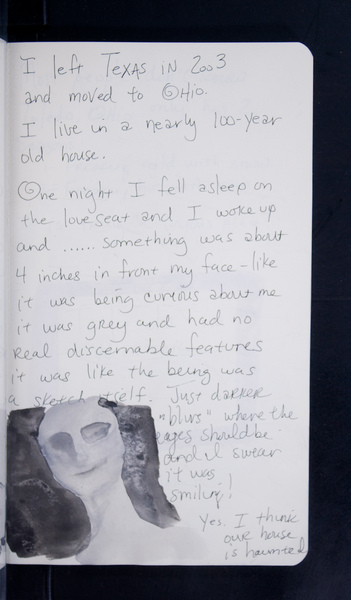 I left TEXAS IN 2003
and moved to OHio.
I live in a nearly 100-year
old house.
One night I fell asleep on
the loveseat and I woke up
and ...... something was about
4 inches in front my face - like
it was being curious about me
it was grey and had no
real discernable features
it was like the being was
a sketch itself. Just darker
"blurs" where the
eyes should be
and I swear
it was
smiling!
Yes. I think
our house
is haunted